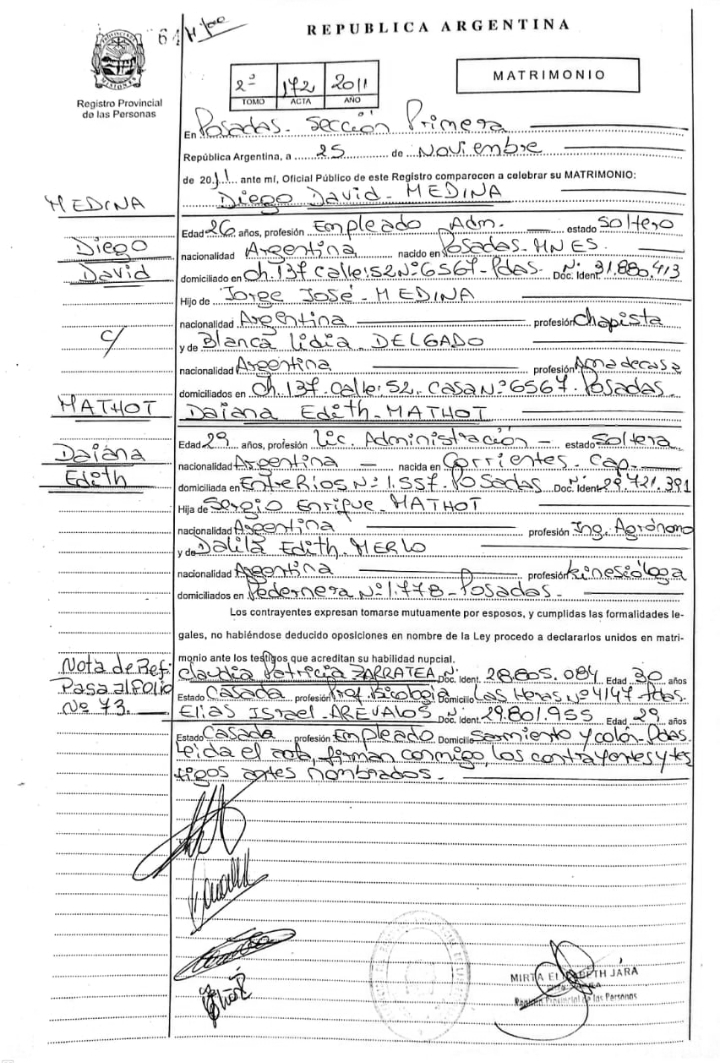 64
REPUBLICA ARGENTINA
Registro Provincial
de las Personas
2º 172 2011
TOMO ACTA AÑO
MATRIMONIO
En Posadas. Sección Primera
República Argentina, a 25 de Noviembre
de 2011 ante mí, Oficial Público de este Registro comparecen a celebrar su MATRIMONIO:
Diego David - MEDINA
MEDINA
Diego
David
c/
MATHOT
Daiana
Edith
Edad 26 años, profesión Empleado Adm. estado Soltero
nacionalidad Argentina nacido en Posadas - MNES.
domiciliado en Ch. 137 calle: 52 Nº 6567 - Pdas. Doc. Ident. Nº: 31.880.413
Hijo de Jorge José - MEDINA
nacionalidad Argentina profesión Chapista
y de Blanca Lidia DELGADO
nacionalidad Argentina profesión Ama de casa
domiciliados en Ch. 137. Calle: 52. Casa Nº 6567. Posadas.
Daiana Edith - MATHOT
Edad 29 años, profesión Lic. Administración - estado Soltera
nacionalidad Argentina - nacida en Corrientes. Cap.
domiciliada en Entre Rios Nº 1.557. Posadas Doc. Ident. 29.721.391
Hija de Sergio Enrique - MATHOT
nacionalidad Argentina profesión Ing. Agrónomo
y de Dalila Edith - MERLO
nacionalidad Argentina profesión Kinesióloga
domiciliados en Pedernera Nº 1.778 - Posadas.
Los contrayentes expresan tomarse mutuamente por esposos, y cumplidas las formalidades le-
gales, no habiéndose deducido oposiciones en nombre de la Ley procedo a declararlos unidos en matri-
monio ante los testigos que acreditan su habilidad nupcial.
Nota de Ref:
Pasa al Folio
Nº 73.
Claudia Patricia ZARRATEA Doc. Ident. Nº: 28.805.084 Edad 30 años
Estado Casada profesión Prof. Psicología Domicilio Las Heras Nº 4147 - Pdas.
Elías Israel AREVALOS Doc. Ident. Nº: 29.801.955 Edad 29 años
Estado Casado profesión Empleado Domicilio Sarmiento y Colón - Pdas.
Leida el acta, firman conmigo, los contrayentes y tes
tigos antes nombrados.
MIRTA ELIZABETH JARA
Registro Provincial de las Personas